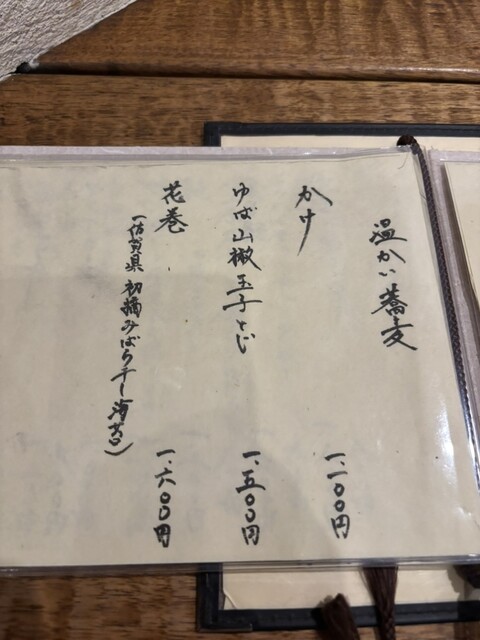 温かい蕎麦
かけ 一、一〇〇円
ゆば山椒玉子とじ 一、五〇〇円
花巻 一、六〇〇円
(佐賀県 初摘みばら干し海苔)